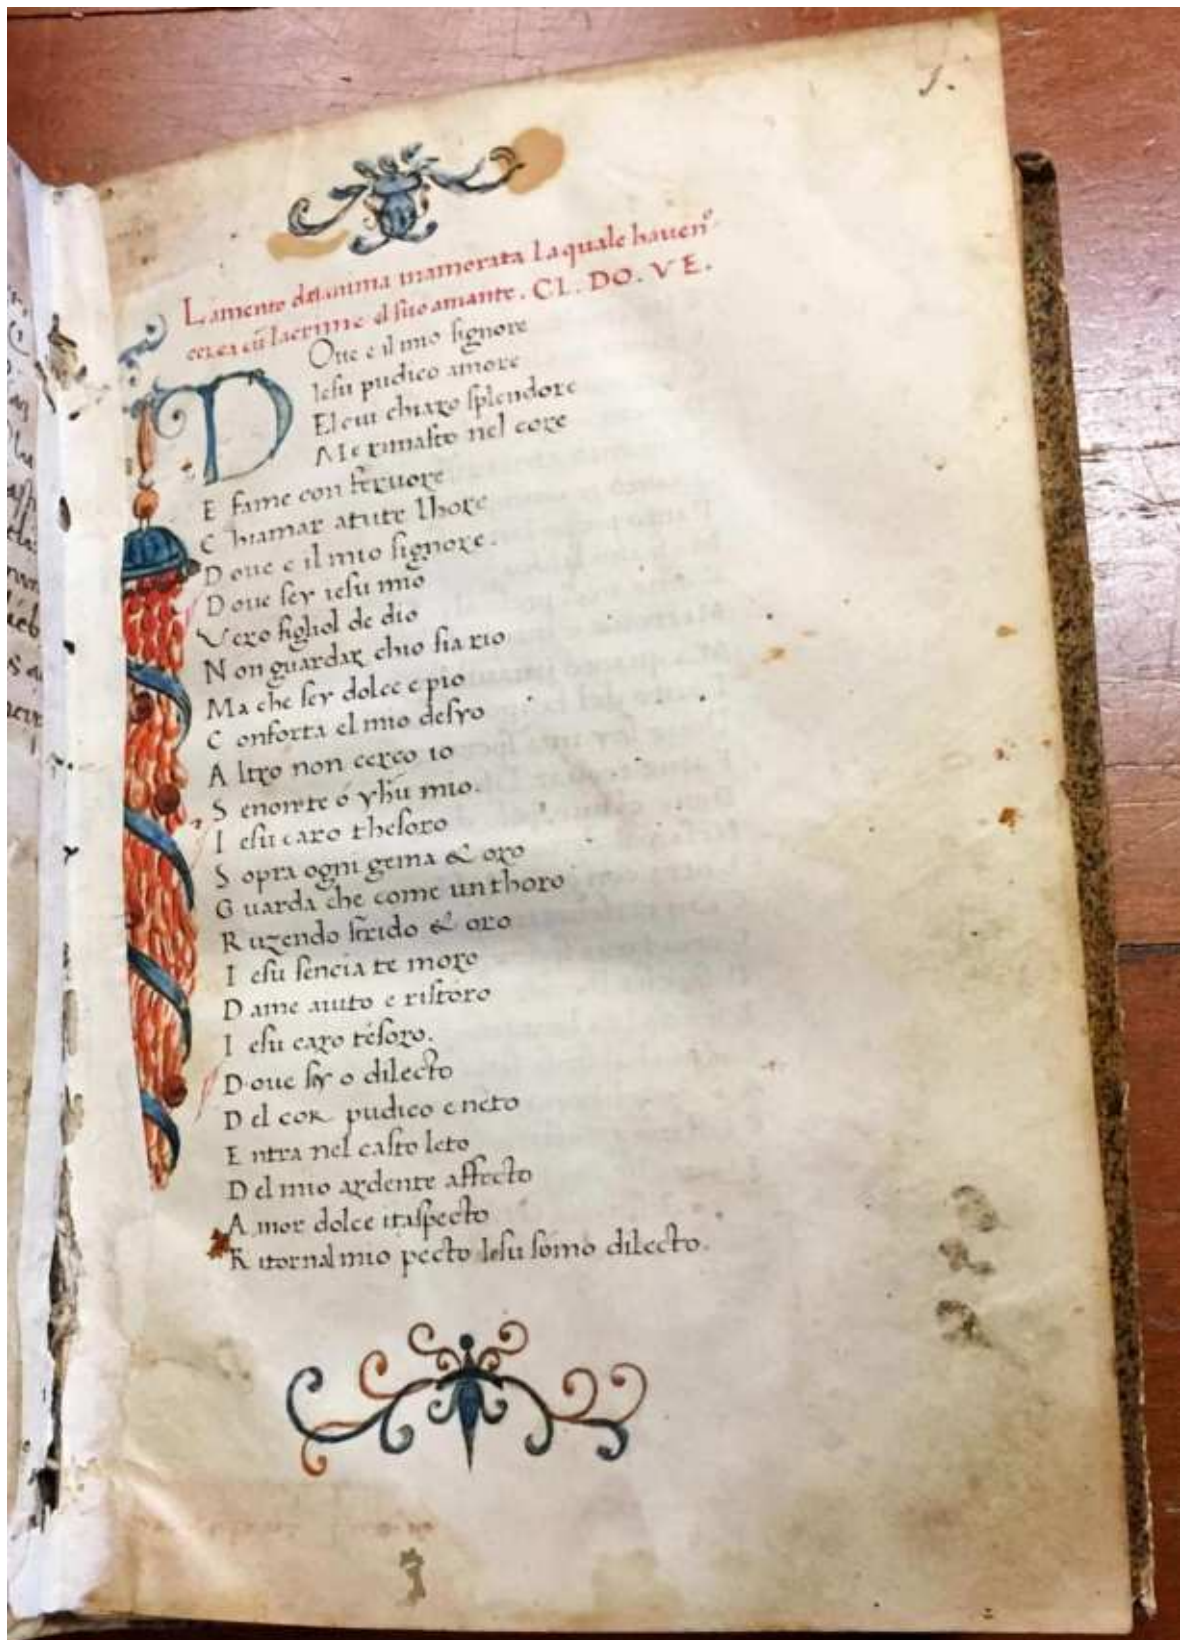 J.
Lamento delanima inamorata Laquale haven⁰
cerca cū lacrime el suo amante. CL. DO. VE.
DOue e il mio signore
Iesu pudico amore
El cui chiaro splendore
Me rimasto nel core
E fame con fervore
Chiamar atute lhore
Doue e il mio signore.
Doue sey iesu mio
Vero figliol de dio
Non guardar chio sia rio
Ma che sey dolce e pio
Conforta el mio desyo
Altro non cerco io
Se non te o yhū mio.
Iesu caro thesoro
Sopra ogni gema & oro
Guarda che come un thoro
Ruzendo strido & oro
Iesu sencia te moro
Dame aiuto e ristoro
Iesu caro tesoro.
Doue sey o dilecto
Del cor pudico e neto
Entra nel casto leto
Del mio ardente affecto
Amor dolce itaspecto
Ritornal mio pecto Iesu somo dilecto.